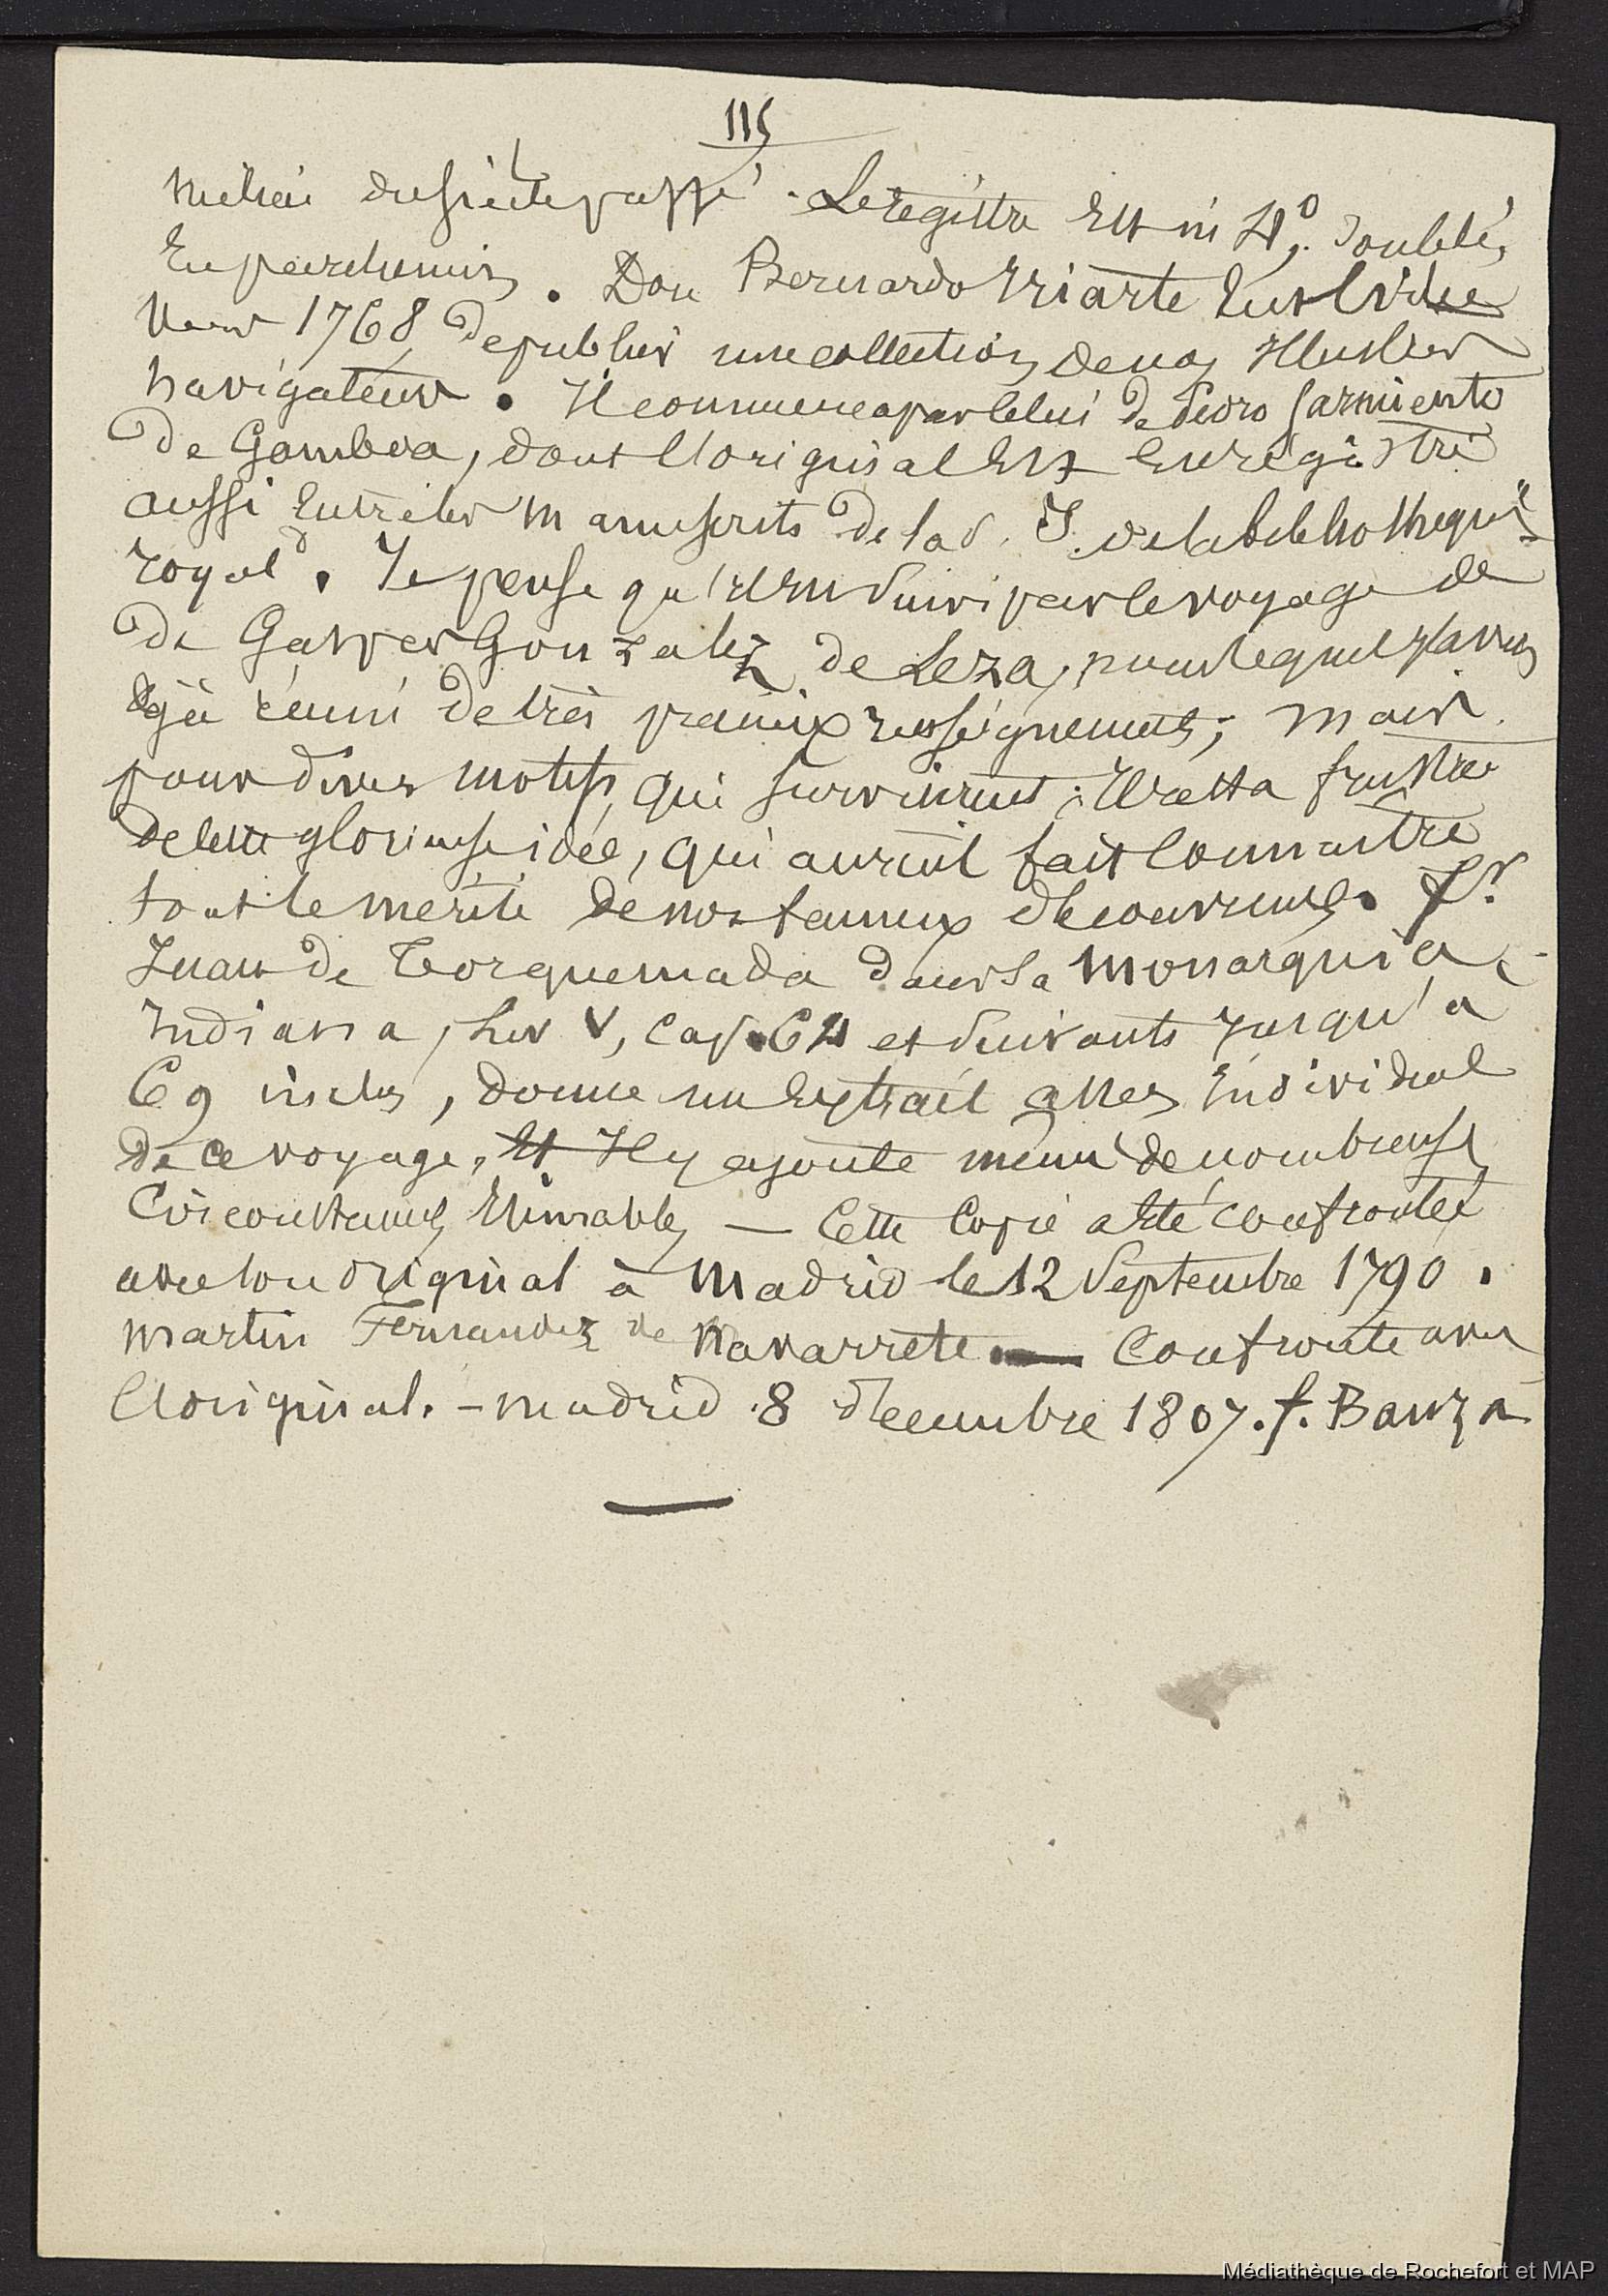 115
milieu du siècle passé. Le régistre Est in 4º, doublé,
En parchemin. Don Bernardo Yriarte Eut l'idée
Vers 1768, de publier une collection de nos Illustres
navigateurs. Il commença par celui de Pedro Sarmiento
de Gamboa, dont l'original Est Enrégistré
aussi Entre les manuscrits de la d. J. de la bibliothèque
royale. Je pense qu'il Eut suivi par le voyage de
de Gaspar Gonzalez de Leza, pour lequel il avait
déjà réuni de très précieux renseignements; mais
pour divers motifs qui survinrent, Il resta frustré
de cette glorieuse idée, qui aurait fait connaitre
tout le mérite de nos fameux découvreurs. Fr.
Juan de Torquemada dans sa Monarquia
Indiana, Liv V, Cap. 64 et suivants jusqu'à
69 inclus, donne un Extrait assez Individuel
de ce voyage, Et Il y ajoute même de nombreuses
Circonstances Estimables — Cette Copie a Eté confrontée
avec son original à Madrid le 12 Septembre 1790.
Martin Fernandez de Navarrete — Confronté avec
l'original. – Madrid 8 décembre 1807. f. Bauza